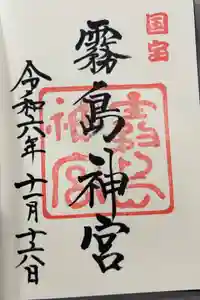 国宝
霧島神宮
霧島神宮
令和六年十一月十六日